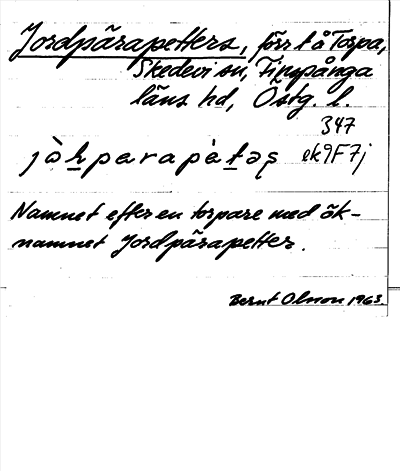 Jordpärapetters, förr t å Torpa,
Skedevi sn, Finspånga
läns hd, Östg. l.
347
jò̀ḵparapètəş ek9F7j
Namnet efter en torpare med ök-
namnet Jordpärapetter.
Bernt Olsson 1963.